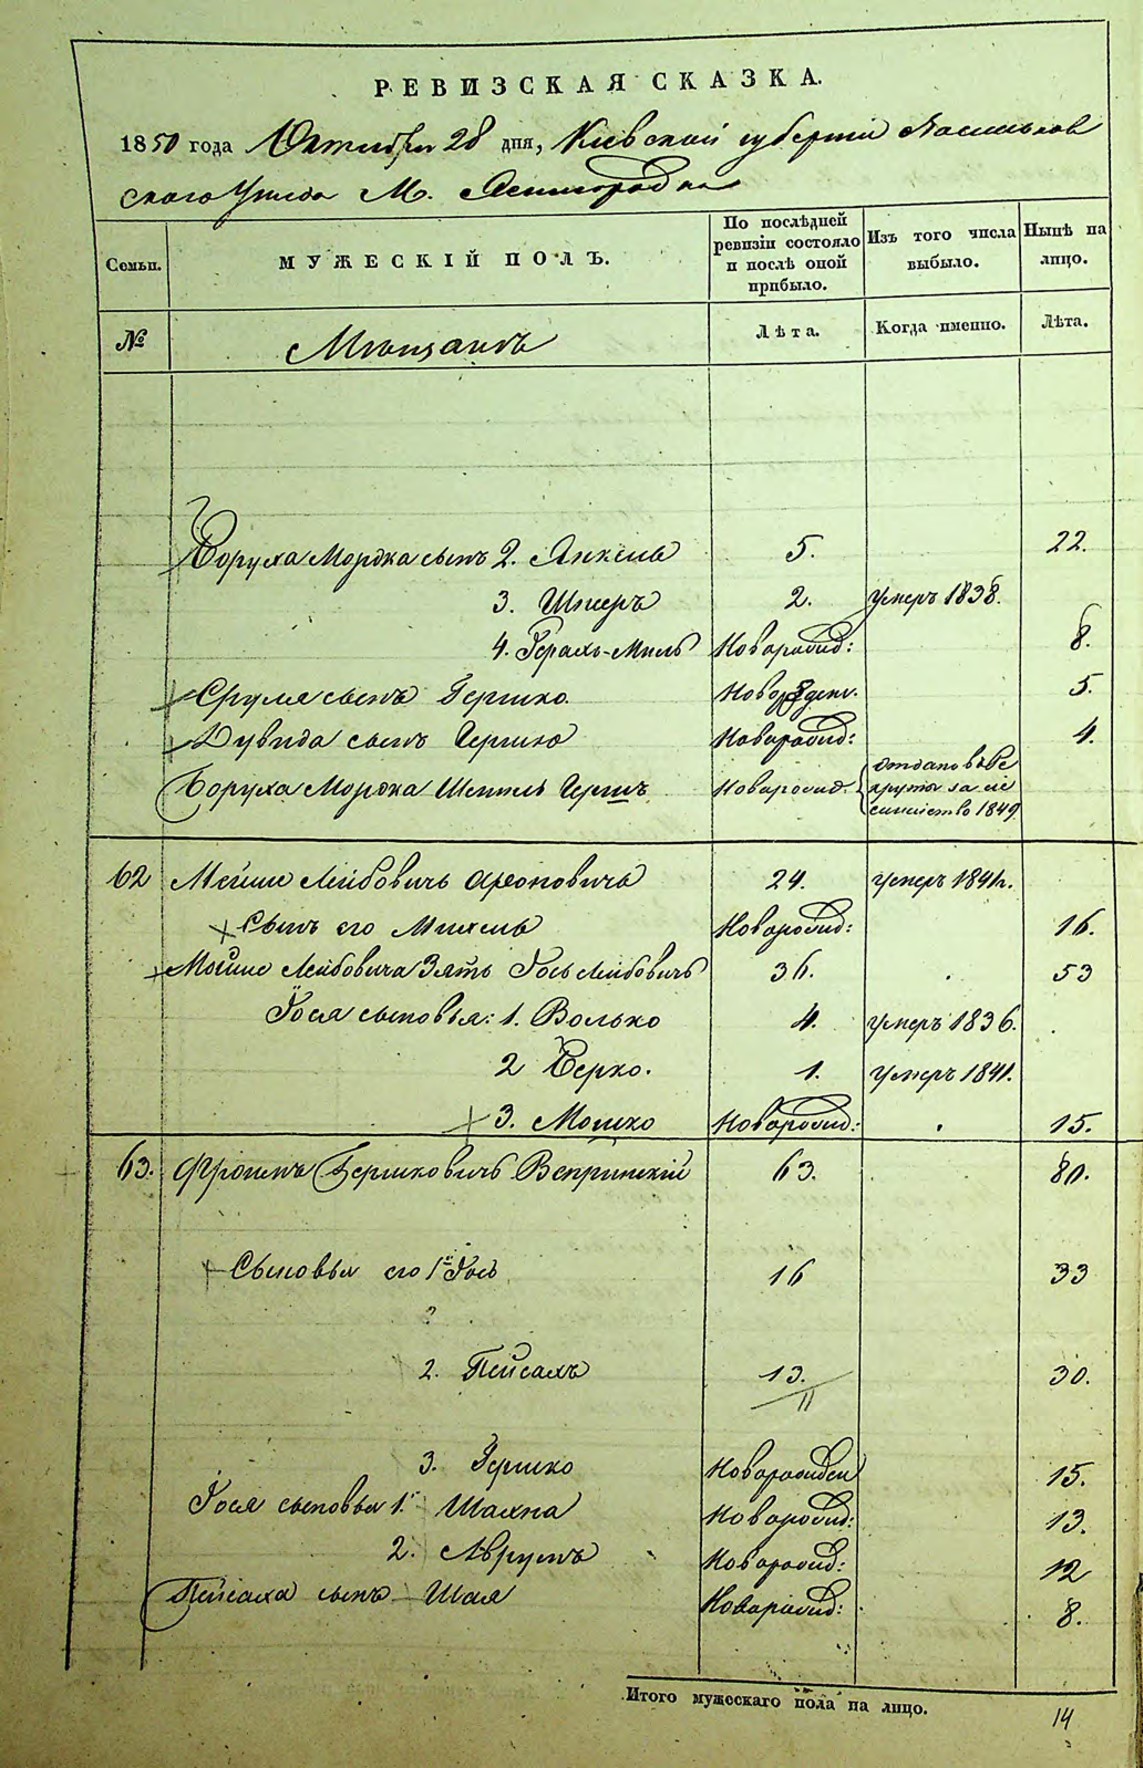 РЕВИЗСКАЯ СКАЗКА.
1850 года Октября 28 дня, Кіевской губерніи Васильков
скаго Уезда М. Ясногородка
Семьи.
МУЖЕСКІЙ ПОЛЪ.
По послѣдней ревизіи состояло и послѣ оной прибыло.
Изъ того числа выбыло.
Нынѣ на лицо.
№
Мѣщанъ
Лѣта.
Когда именно.
Лѣта.
Боруха Мордка сынъ 2. Янкель 5. 22.
3. Шмеръ 2. умеръ 1838.
4. Герахъ-Миль Новорожд: 8.
Сруля сынъ Гершко. Новорожден. 5.
Дувида сынъ Гершко Новорожд: 4.
Боруха Мордка Шепсель Новорожд. отдано въ Ре
круты за сіе
семейство 1849
62 Мейше Лейбовичъ Ароновичъ 24. умеръ 1841г.
Сынъ его Михель Новорожд: 16.
Мойше Лейбовича Зять Іось Лейбовичъ 36. 53
Іося сыновья: 1. Волько 4. умеръ 1836.
2 Берко. 1. умеръ 1841.
3. Мошко Новорожд: 15.
63. Фроимъ Гершковичъ Вепринскій 63. 80.
Сыновья его 1й Іось 16 33
2. Пейсахъ 13. 30.
11
3. Гершко Новорожден 15.
Іося сыновья 1. Шахна Новорожд: 13.
2. Аврумъ Новорожд: 12
Пейсаха сынъ Шая Новорожд: 8.
Итого мужескаго пола на лицо. 14